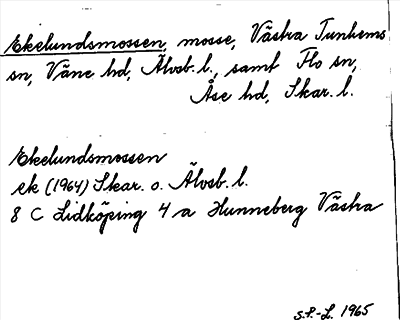 Ekelundsmossen, mosse, Västra Tunhems
sn, Väne hd, Älvsb. l., samt Flo sn,
Åse hd, Skar. l.
Ekelundsmossen
ek (1964) Skar. o. Älvsb. l.
8 C Lidköping 4 a Hunneberg Västra
S.P.-L. 1965